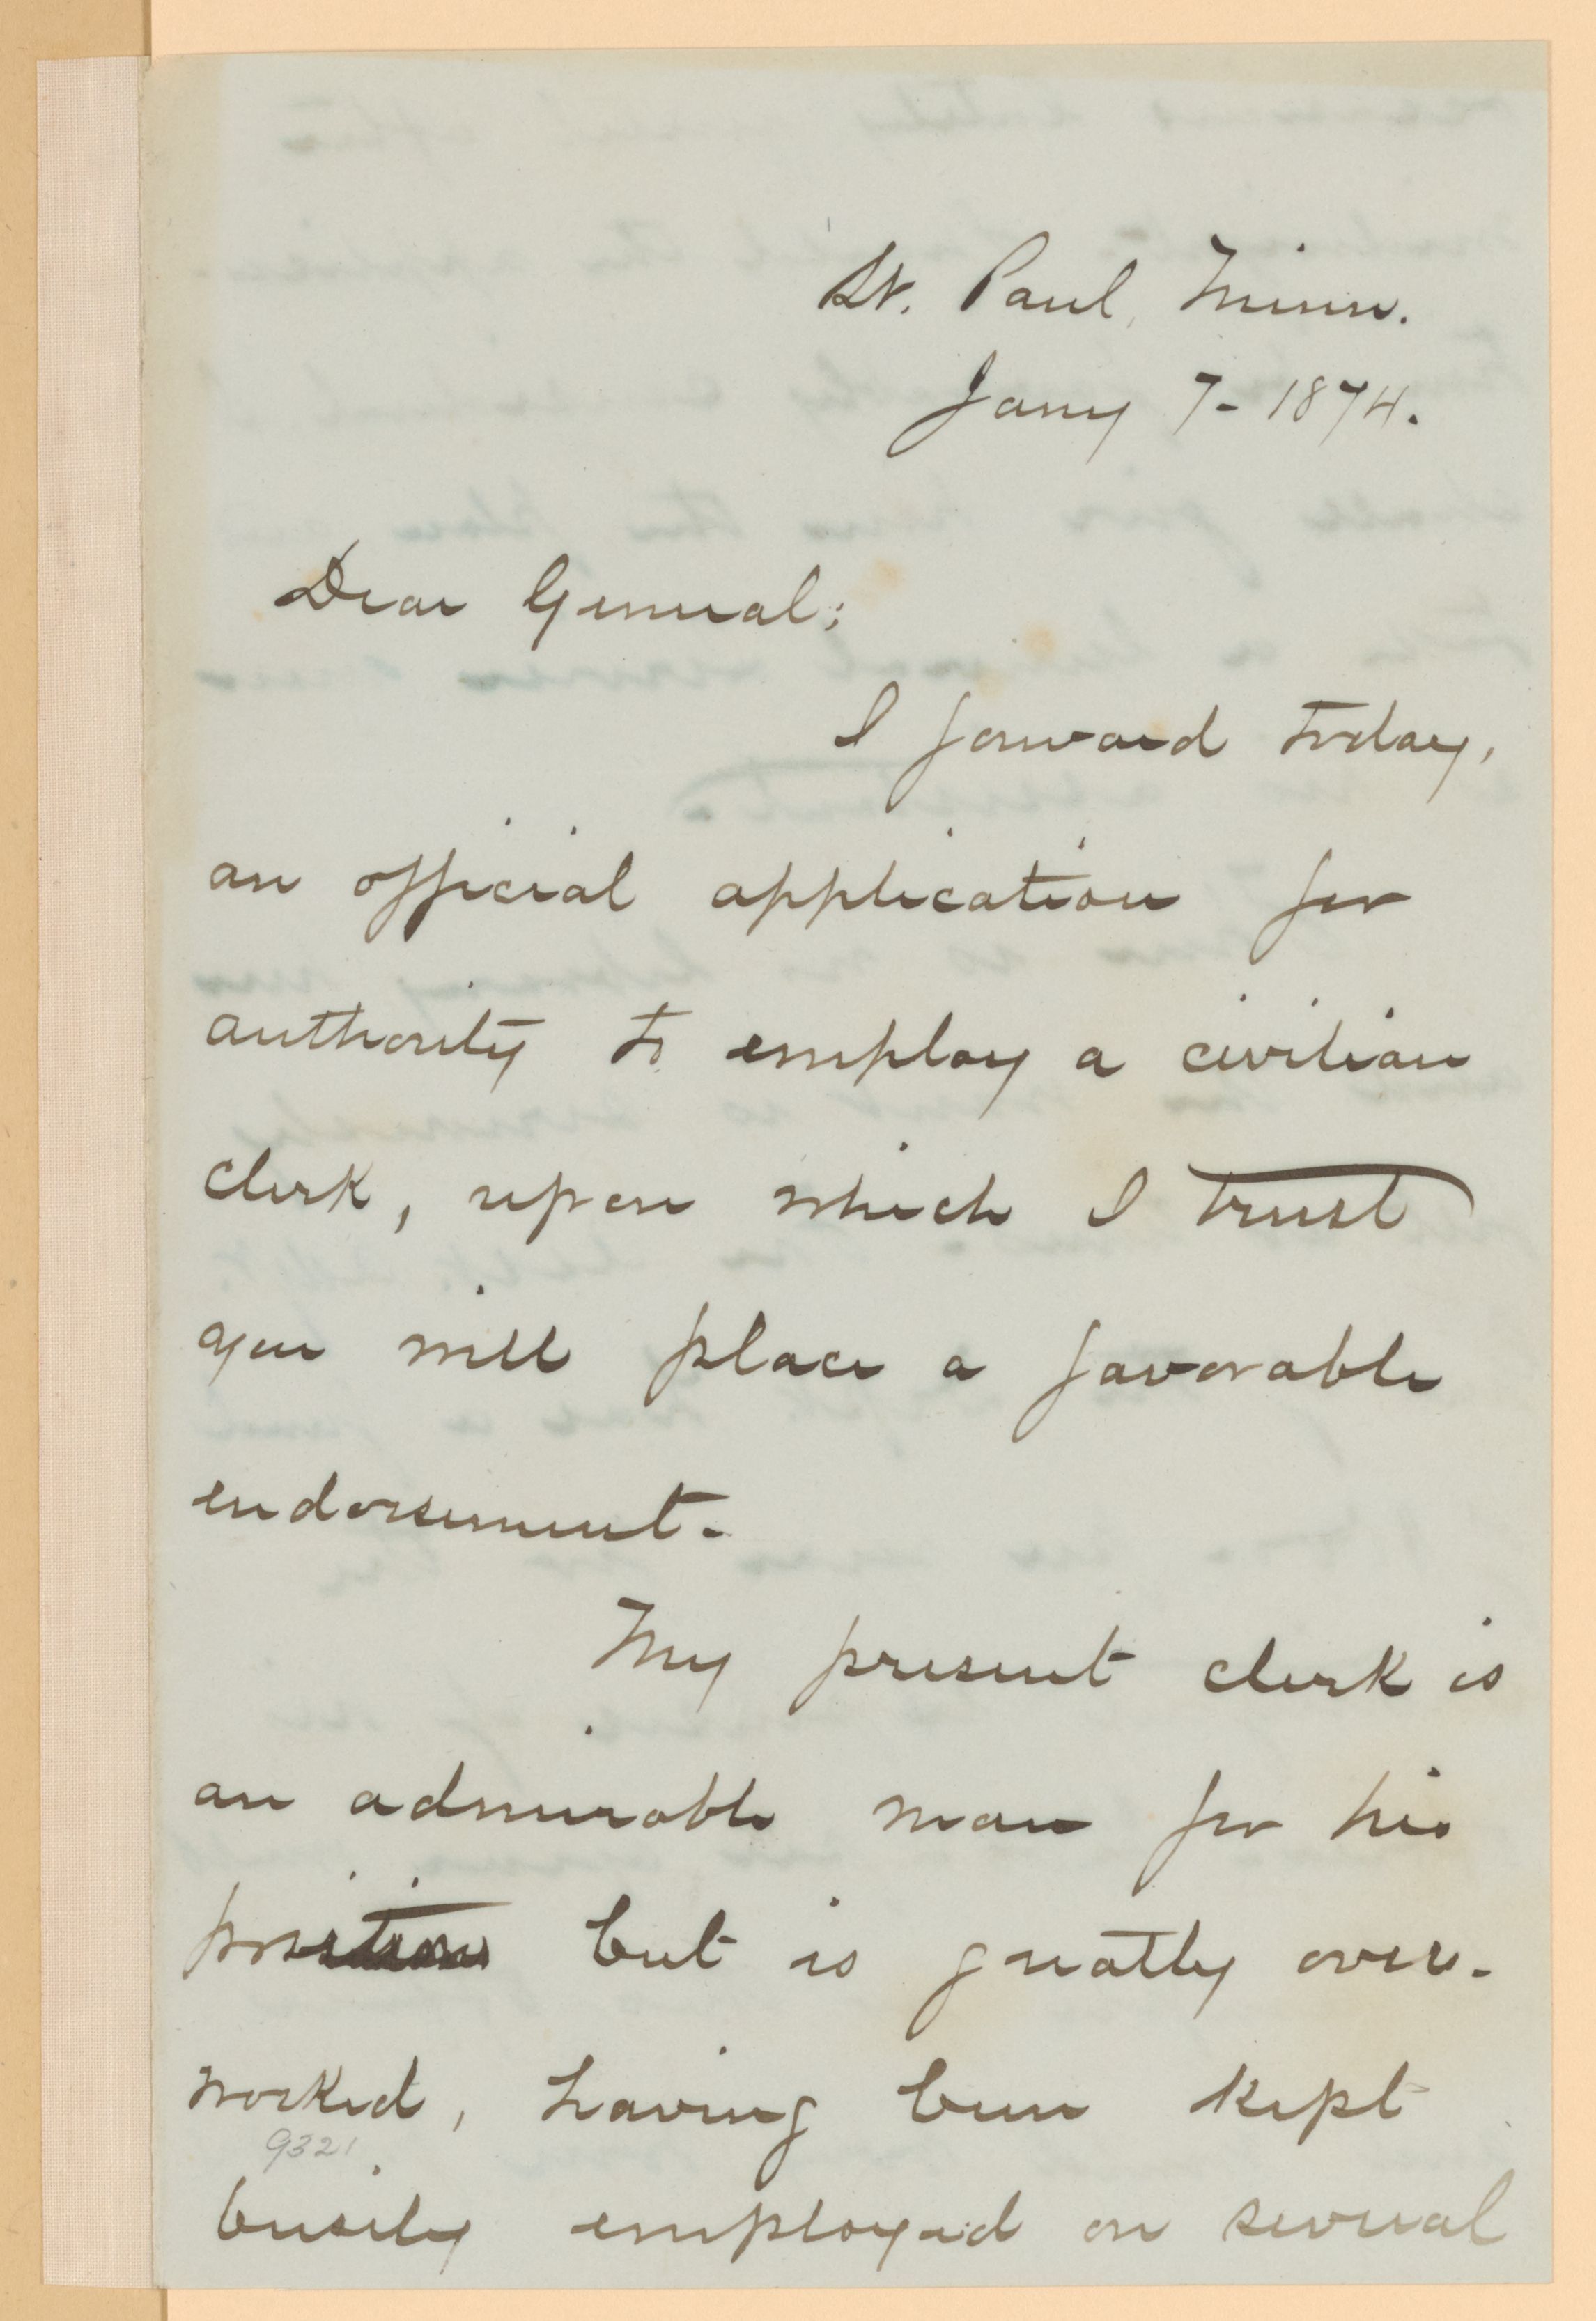 St. Paul, Minn.
Jany 7-1874.
Dear General;
I forward today,
an official application for
authority to employ a civilian
clerk, upon which I trust
you will place a favorable
endorsement.
My present clerk is
an admirable man for his
position but is greatly over-
worked, having been kept
9321
busily employed on several